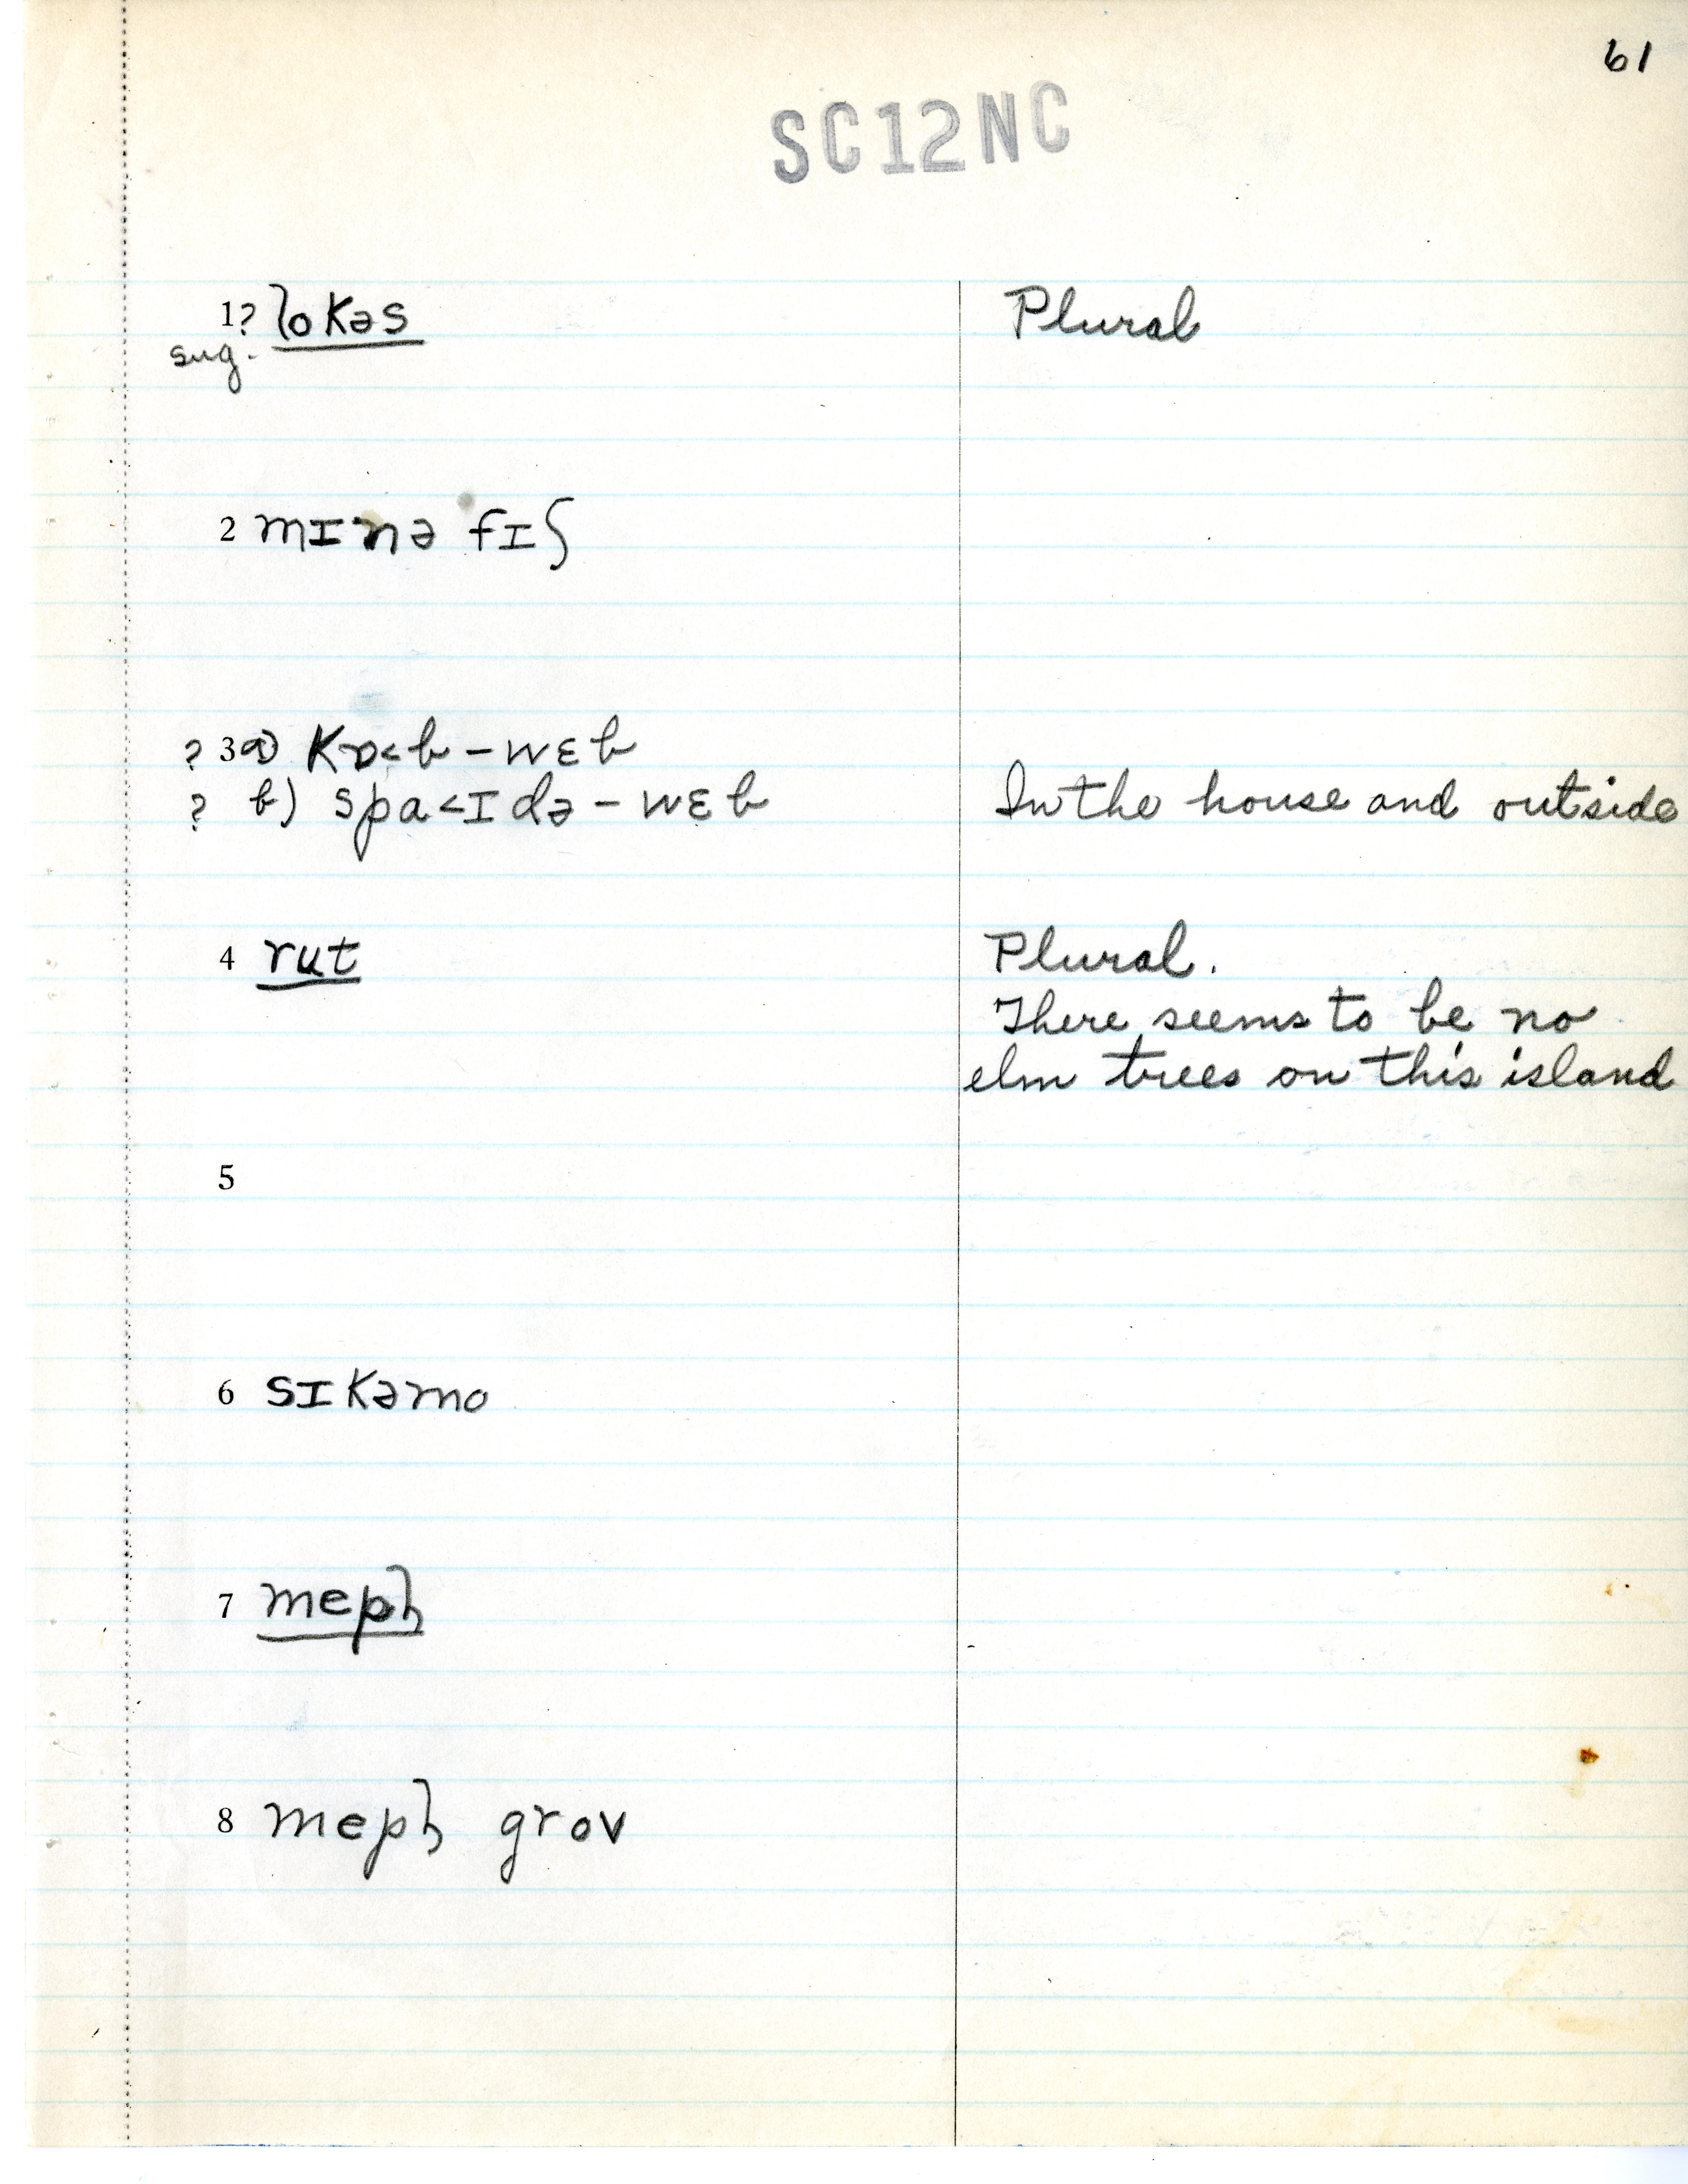 61
SC12NC
1? lokəs Plural
sug.
2 mɪnə fɪʃ
? 3a) Kɒ<b-wɛb
? b) spa<ɪdə-wɛb In the house and outside
4 rut Plural.
There seems to be no
elm trees on this island
5
6 sɪkəmo
7 mepɫ
8 mepɫ grov